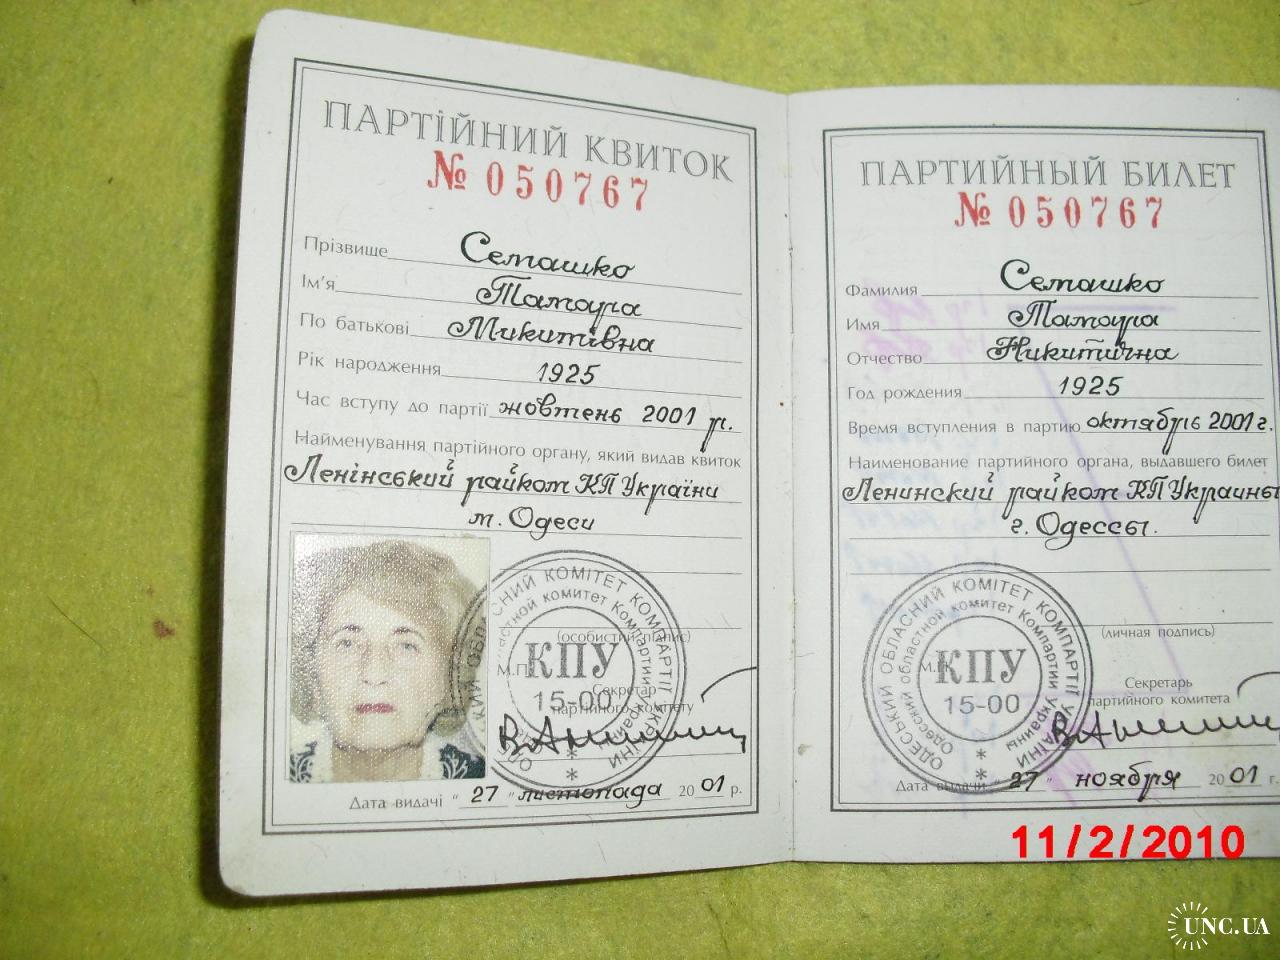 ПАРТІЙНИЙ КВИТОК
№ 050767
Прізвище Семашко
Ім'я Тамара
По батькові Микитівна
Рік народження 1925
Час вступу до партії жовтень 2001 р.
Найменування партійного органу, який видав квиток
Ленінський райком КП України
м. Одеси
(особистий підпис)
М.П.
Секретар
партійного комітету
ОДЕСЬКИЙ ОБЛАСНИЙ КОМІТЕТ КОМПАРТІЇ УКРАЇНИ
Одесский областной комитет Компартии Украины
КПУ
15-00
Дата видачі "27" листопада 2001 р.
ПАРТИЙНЫЙ БИЛЕТ
№ 050767
Фамилия Семашко
Имя Тамара
Отчество Никитична
Год рождения 1925
Время вступления в партию октябрь 2001 г.
Наименование партийного органа, выдавшего билет
Ленинский райком КП Украины
г. Одессы.
(личная подпись)
М.П.
Секретарь
партийного комитета
ОДЕСЬКИЙ ОБЛАСНИЙ КОМІТЕТ КОМПАРТІЇ УКРАЇНИ
Одесский областной комитет Компартии Украины
КПУ
15-00
Дата выдачи "27" ноября 2001 г.
11/2/2010
UNC.UA